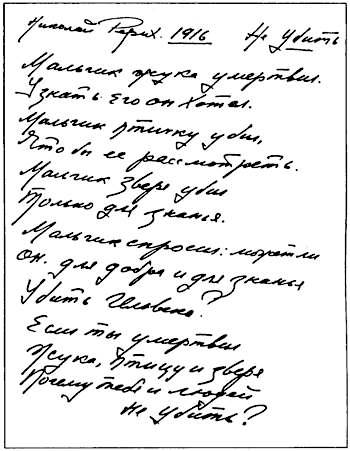 Николай Рерих. 1916 Не убить
Мальчик жука умертвил.
Узнать его он хотел.
Мальчик птичку убил,
Чтобы ее рассмотреть.
Мальчик зверя убил
Только для знанья.
Мальчик спросил: может ли
он для добра и для знанья
Убить Человека?
Если ты умертвил
Жука, птицу и зверя
Почему тебе и людей
не убить?